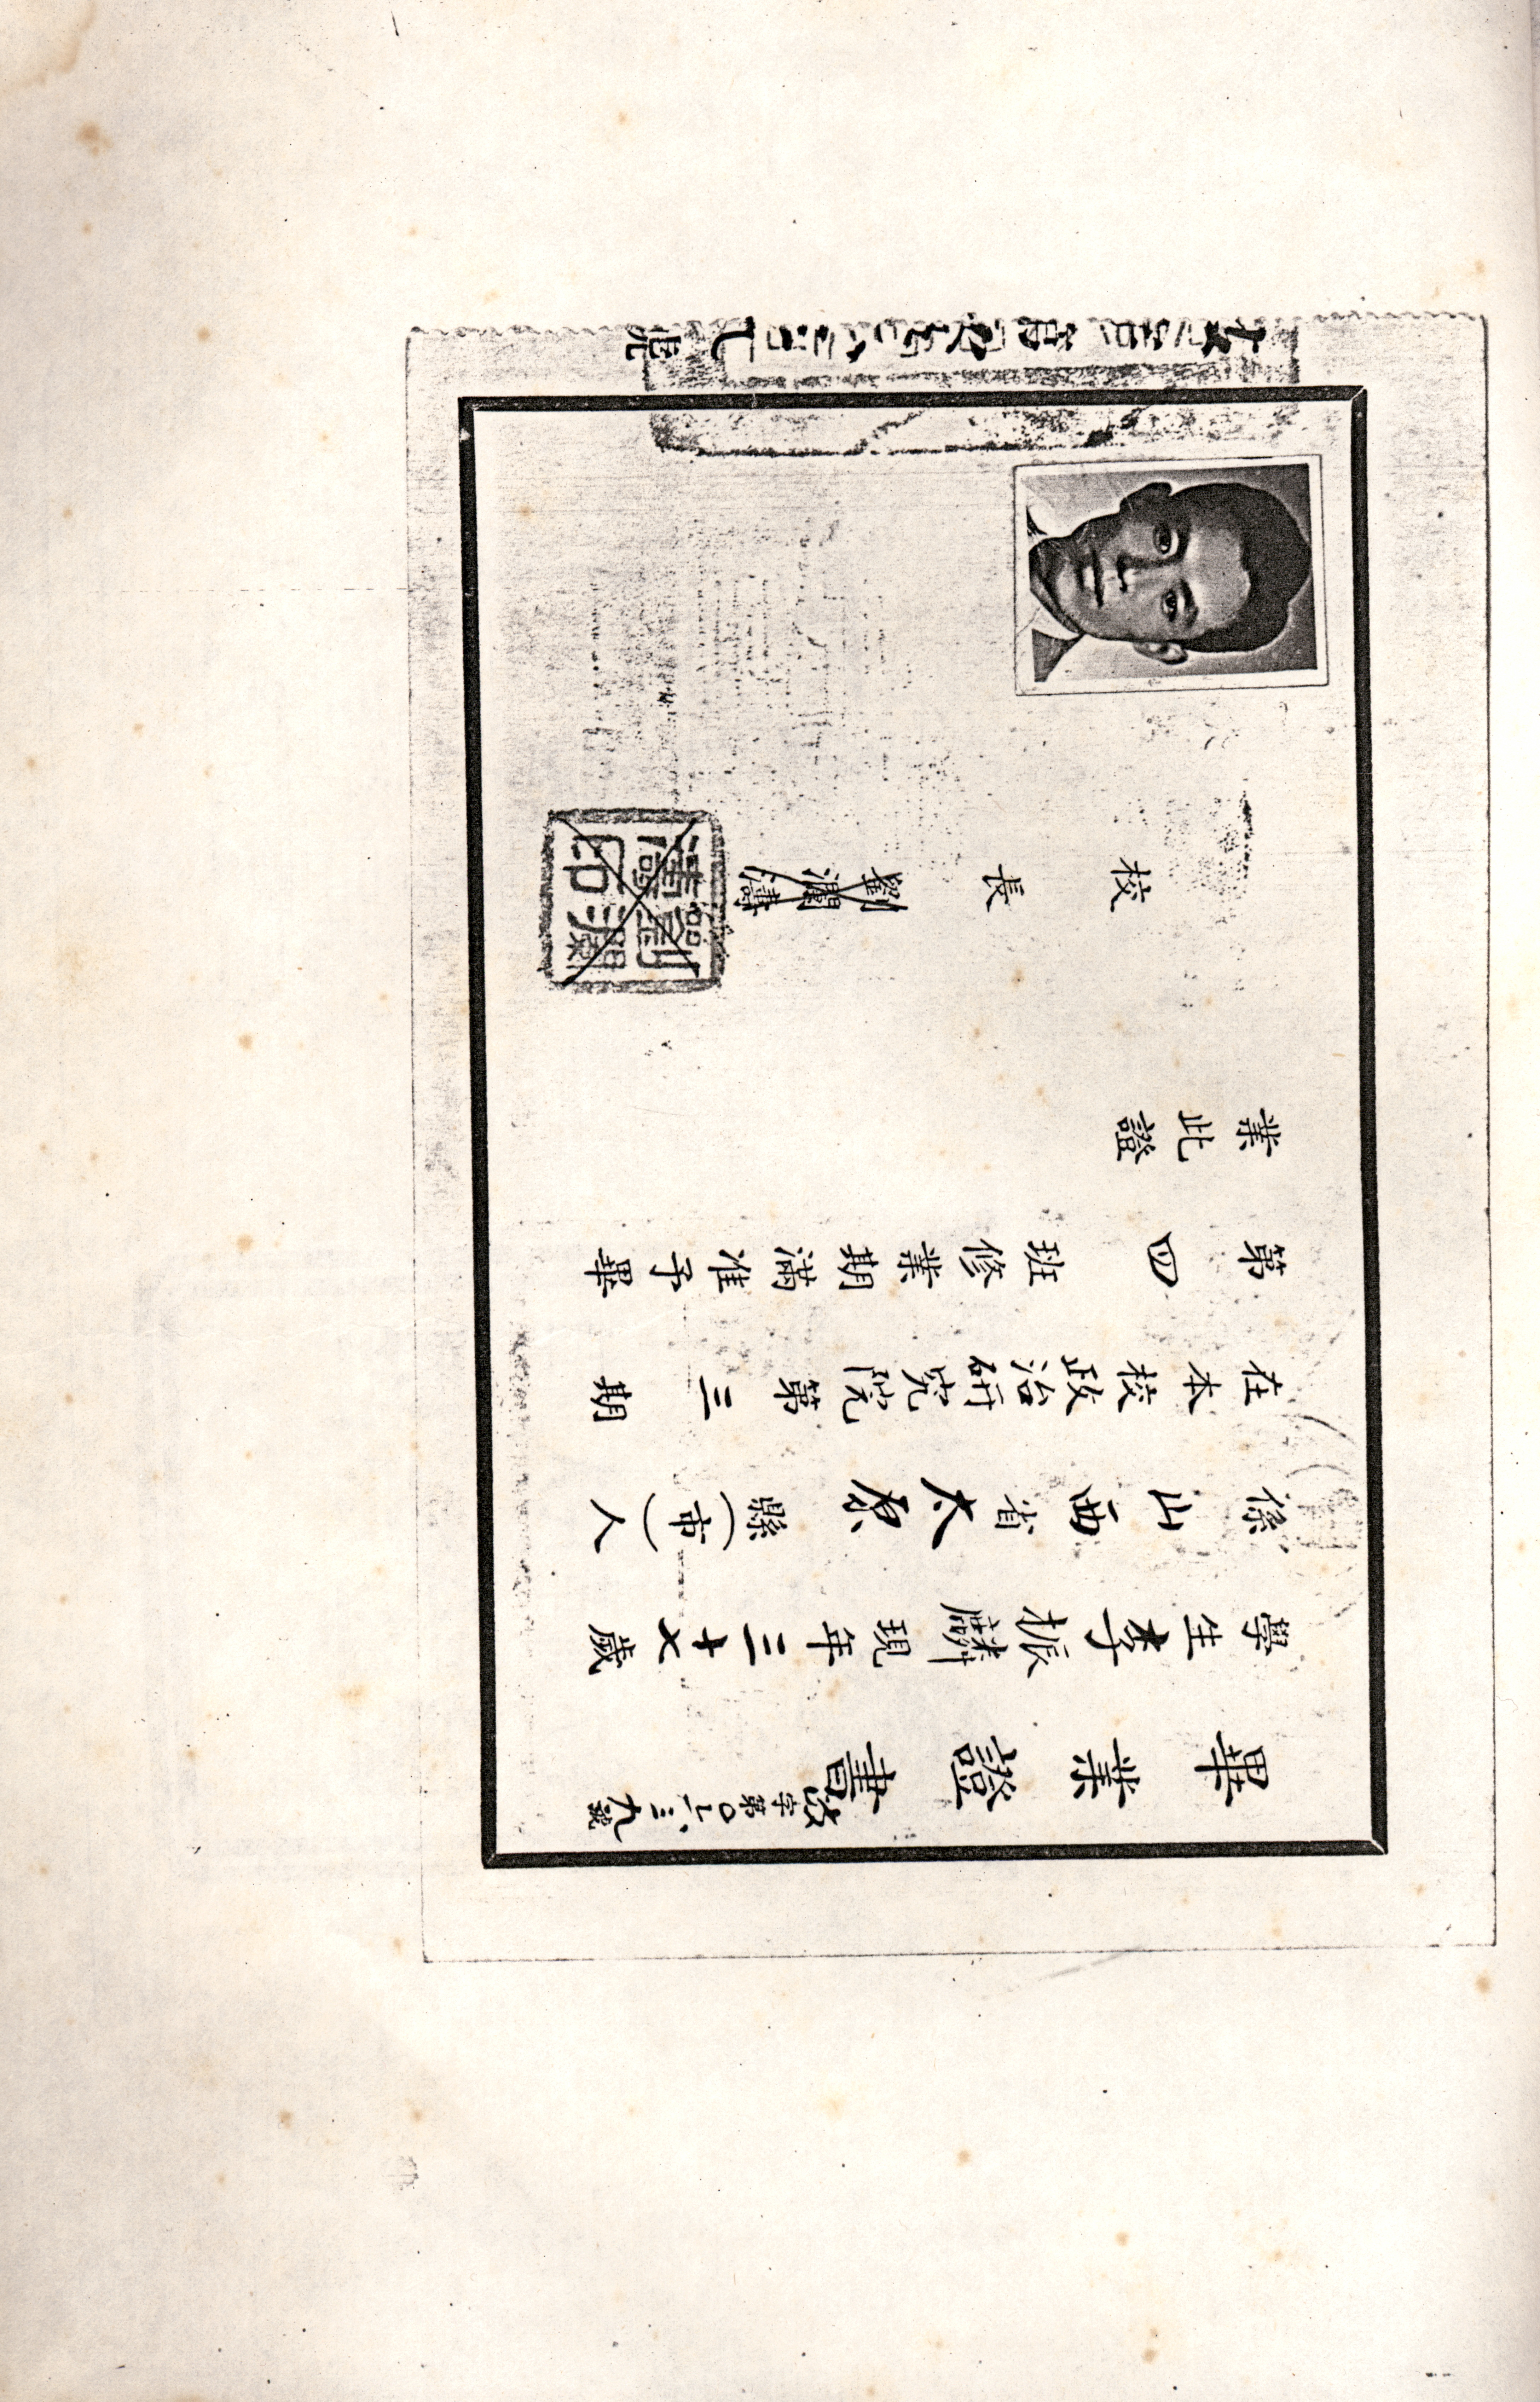 畢業證書
政字第〇一三九號
學生李振麟現年三十七歲
係山西省太原縣(市)人
在本校政治研究院第三期
第四班修業期滿准予畢
業此證
校長劉瀾濤
劉瀾濤印